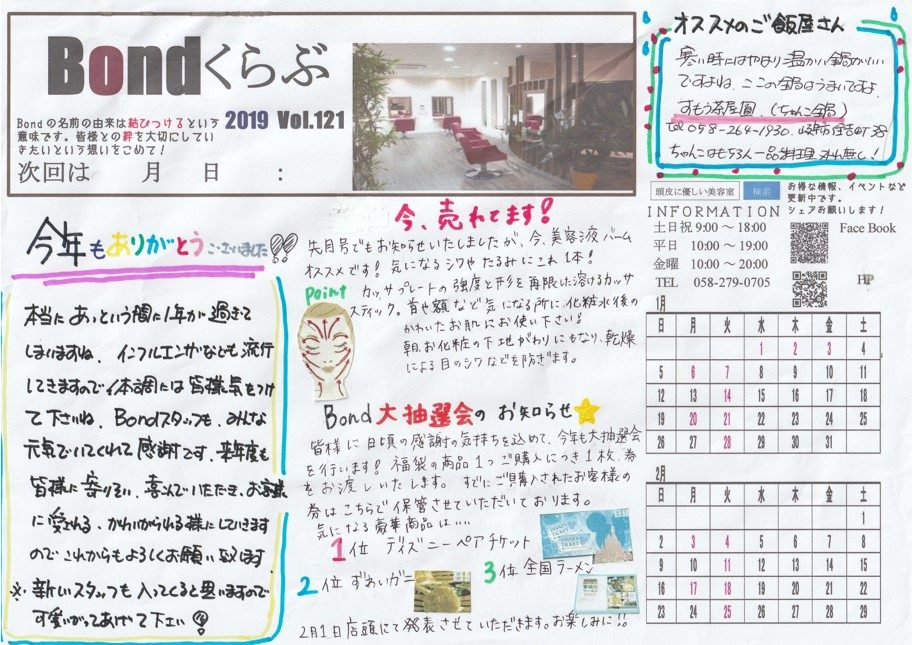 Bondくらぶ
Bondの名前の由来は結びつけるという
意味です。皆様との絆を大切にしてい
きたいという想いをこめて!
2019 Vol.121
次回は 月 日 :
オススメのご飯屋さん
寒い時にはやはり温かい鍋がいい
ですよね、ここの鍋はうまいですよ、
すもう茶屋 (ちゃんこ鍋)
ちゃんこはもちろん一品料理
頭皮に優しい美容室 検索
お得な情報、イベントなど
更新中です。
シェアお願いします!
INFORMATION
土日祝 9:00 ~ 18:00
平日 10:00 ~ 19:00
金曜 10:00 ~ 20:00
TEL 058-279-0705
Face Book
HP
今年もありがとうございました!!
本当にあっという間に1年が過ぎて
しまいますね、インフルエンザなども流行
してきますので体調には皆様気をつけ
て下さいね、Bondスタッフも、みんな
元気でいてくれて感謝です、来年度も
皆様に寄りそい、喜んでいただき、お客様
に愛される、かわいがられる様にしていきます
のでこれからもよろしくお願い致します
※新しいスタッフも入ってくると思いますので
可愛いがってあげて下さい!
今、売れてます!
先月号でもお知らせいたしましたが、今、美容液バーム
オススメです! 気になるシワやたるみにこれ1本!
Point
カッサプレートの強度と形を再限した溶けるカッサ
スティック。首や額など気になる所に化粧水後の
かわいたお肌にお使い下さい!
朝、お化粧の下地がわりにもなり、乾燥
による目のシワなどを防ぎます。
Bond 大抽選会の お知らせ
皆様に日頃の感謝の気持ちを込めて、今年も大抽選会
を行います! 福袋の商品1つご購入につき1枚、券
をお渡しいたします。すでにご購入されたお客様の
券はこちらで保管させていただいております。
気になる豪華商品は…
1位 ディズニーペアチケット
2位 ずわいガニ
3位 全国ラーメン
2月1日店頭にて発表させていただきます。お楽しみに!!
1月
日 月 火 水 木 金 土
1 2 3 4
5 6 7 8 9 10 11
12 13 14 15 16 17 18
19 20 21 22 23 24 25
26 27 28 29 30 31
2月
日 月 火 水 木 金 土
1
2 3 4 5 6 7 8
9 10 11 12 13 14 15
16 17 18 19 20 21 22
23 24 25 26 27 28 29